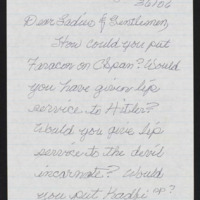 3/6/06
Dear Ladies & Gentlemen,
How could you put
Faracon on CSpan? Would
you have given lip
service to Hitler?
Would you give lip
service to the devil
incarnate? Would
you put Kadfi